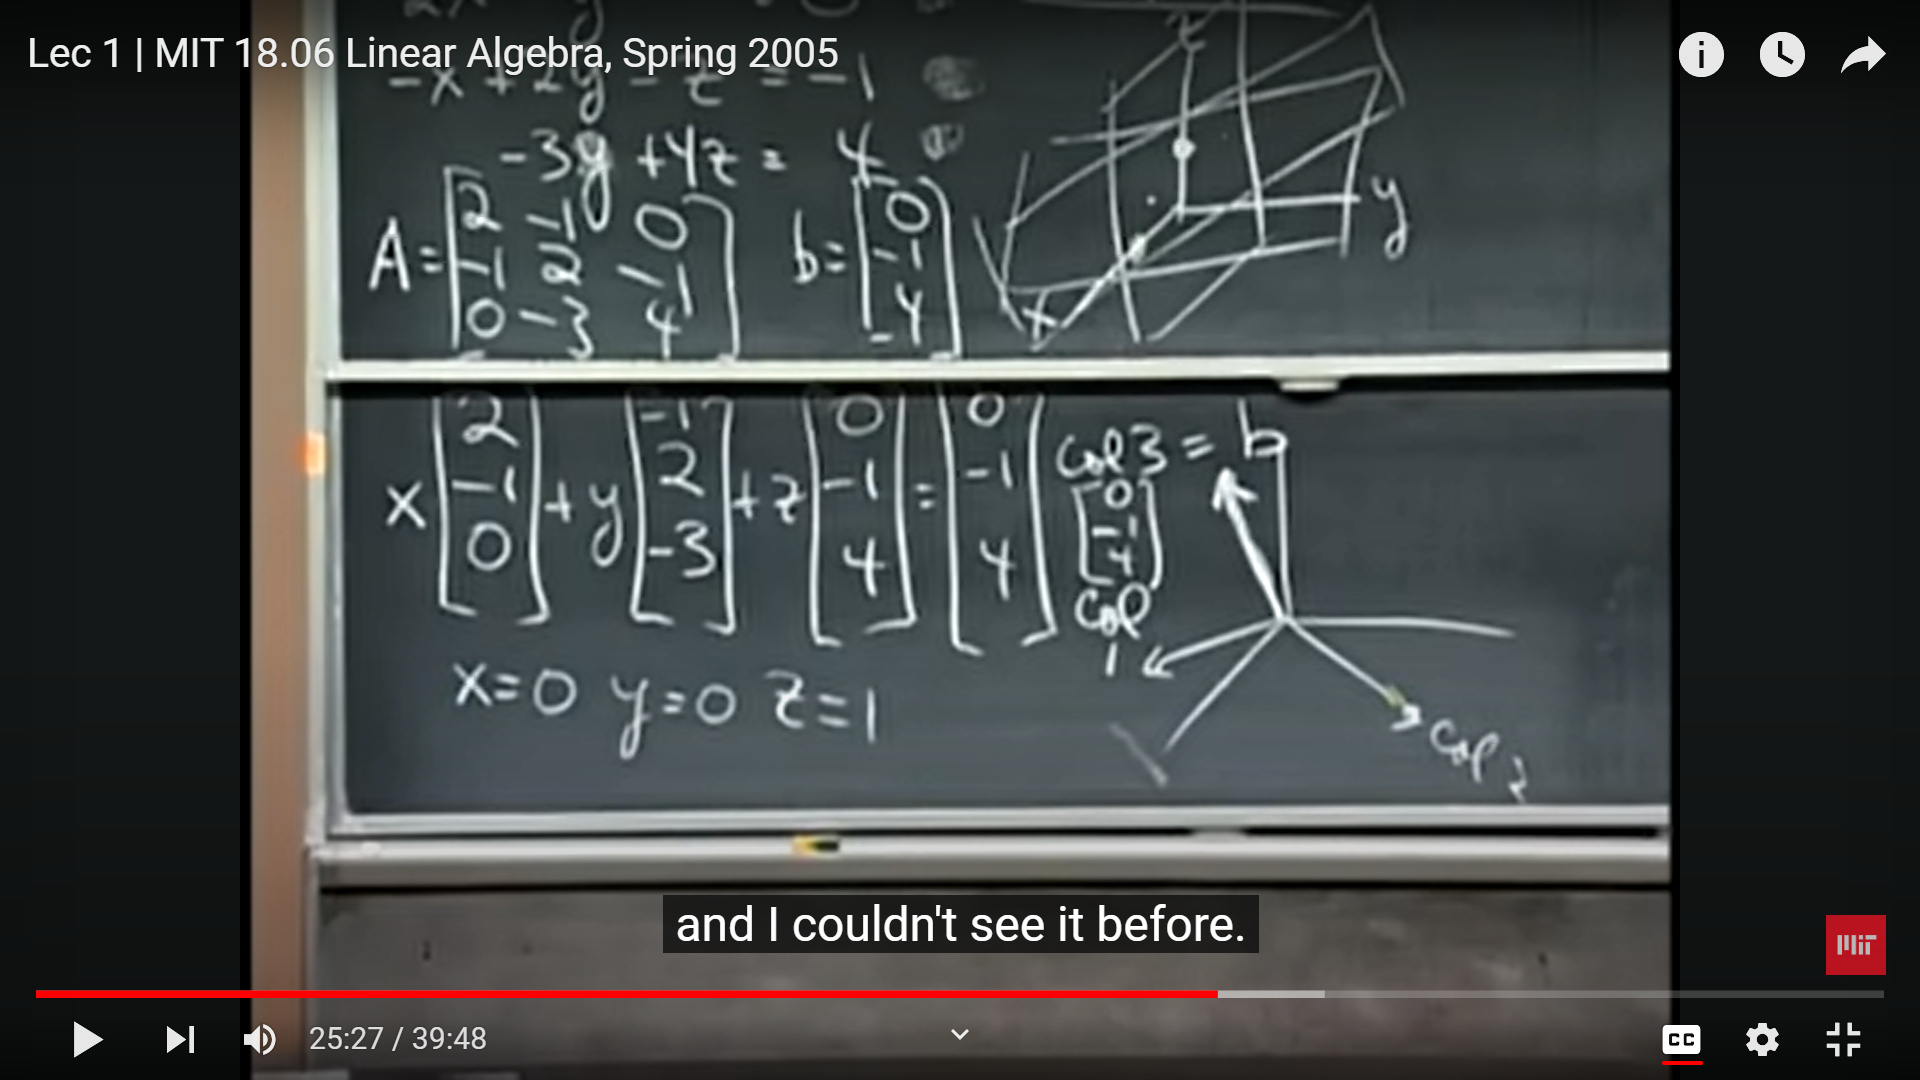 Lec 1 | MIT 18.06 Linear Algebra, Spring 2005
-x + 2y - z = -1
-3y + 4z = 4
z
y
x
A = [2 -1 0
-1 2 -1
0 -3 4]
b = [0
-1
4]
x [2 -1 0] + y [-1 2 -3] + z [0 -1 4] = [0 -1 4]
col 3 = b
[0
-1
4]
col
1
col 2
x=0 y=0 z=1
and I couldn't see it before.
MIT
25:27 / 39:48
CC